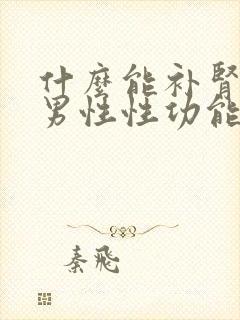 什麼能补腎
男性性功能
秦飛